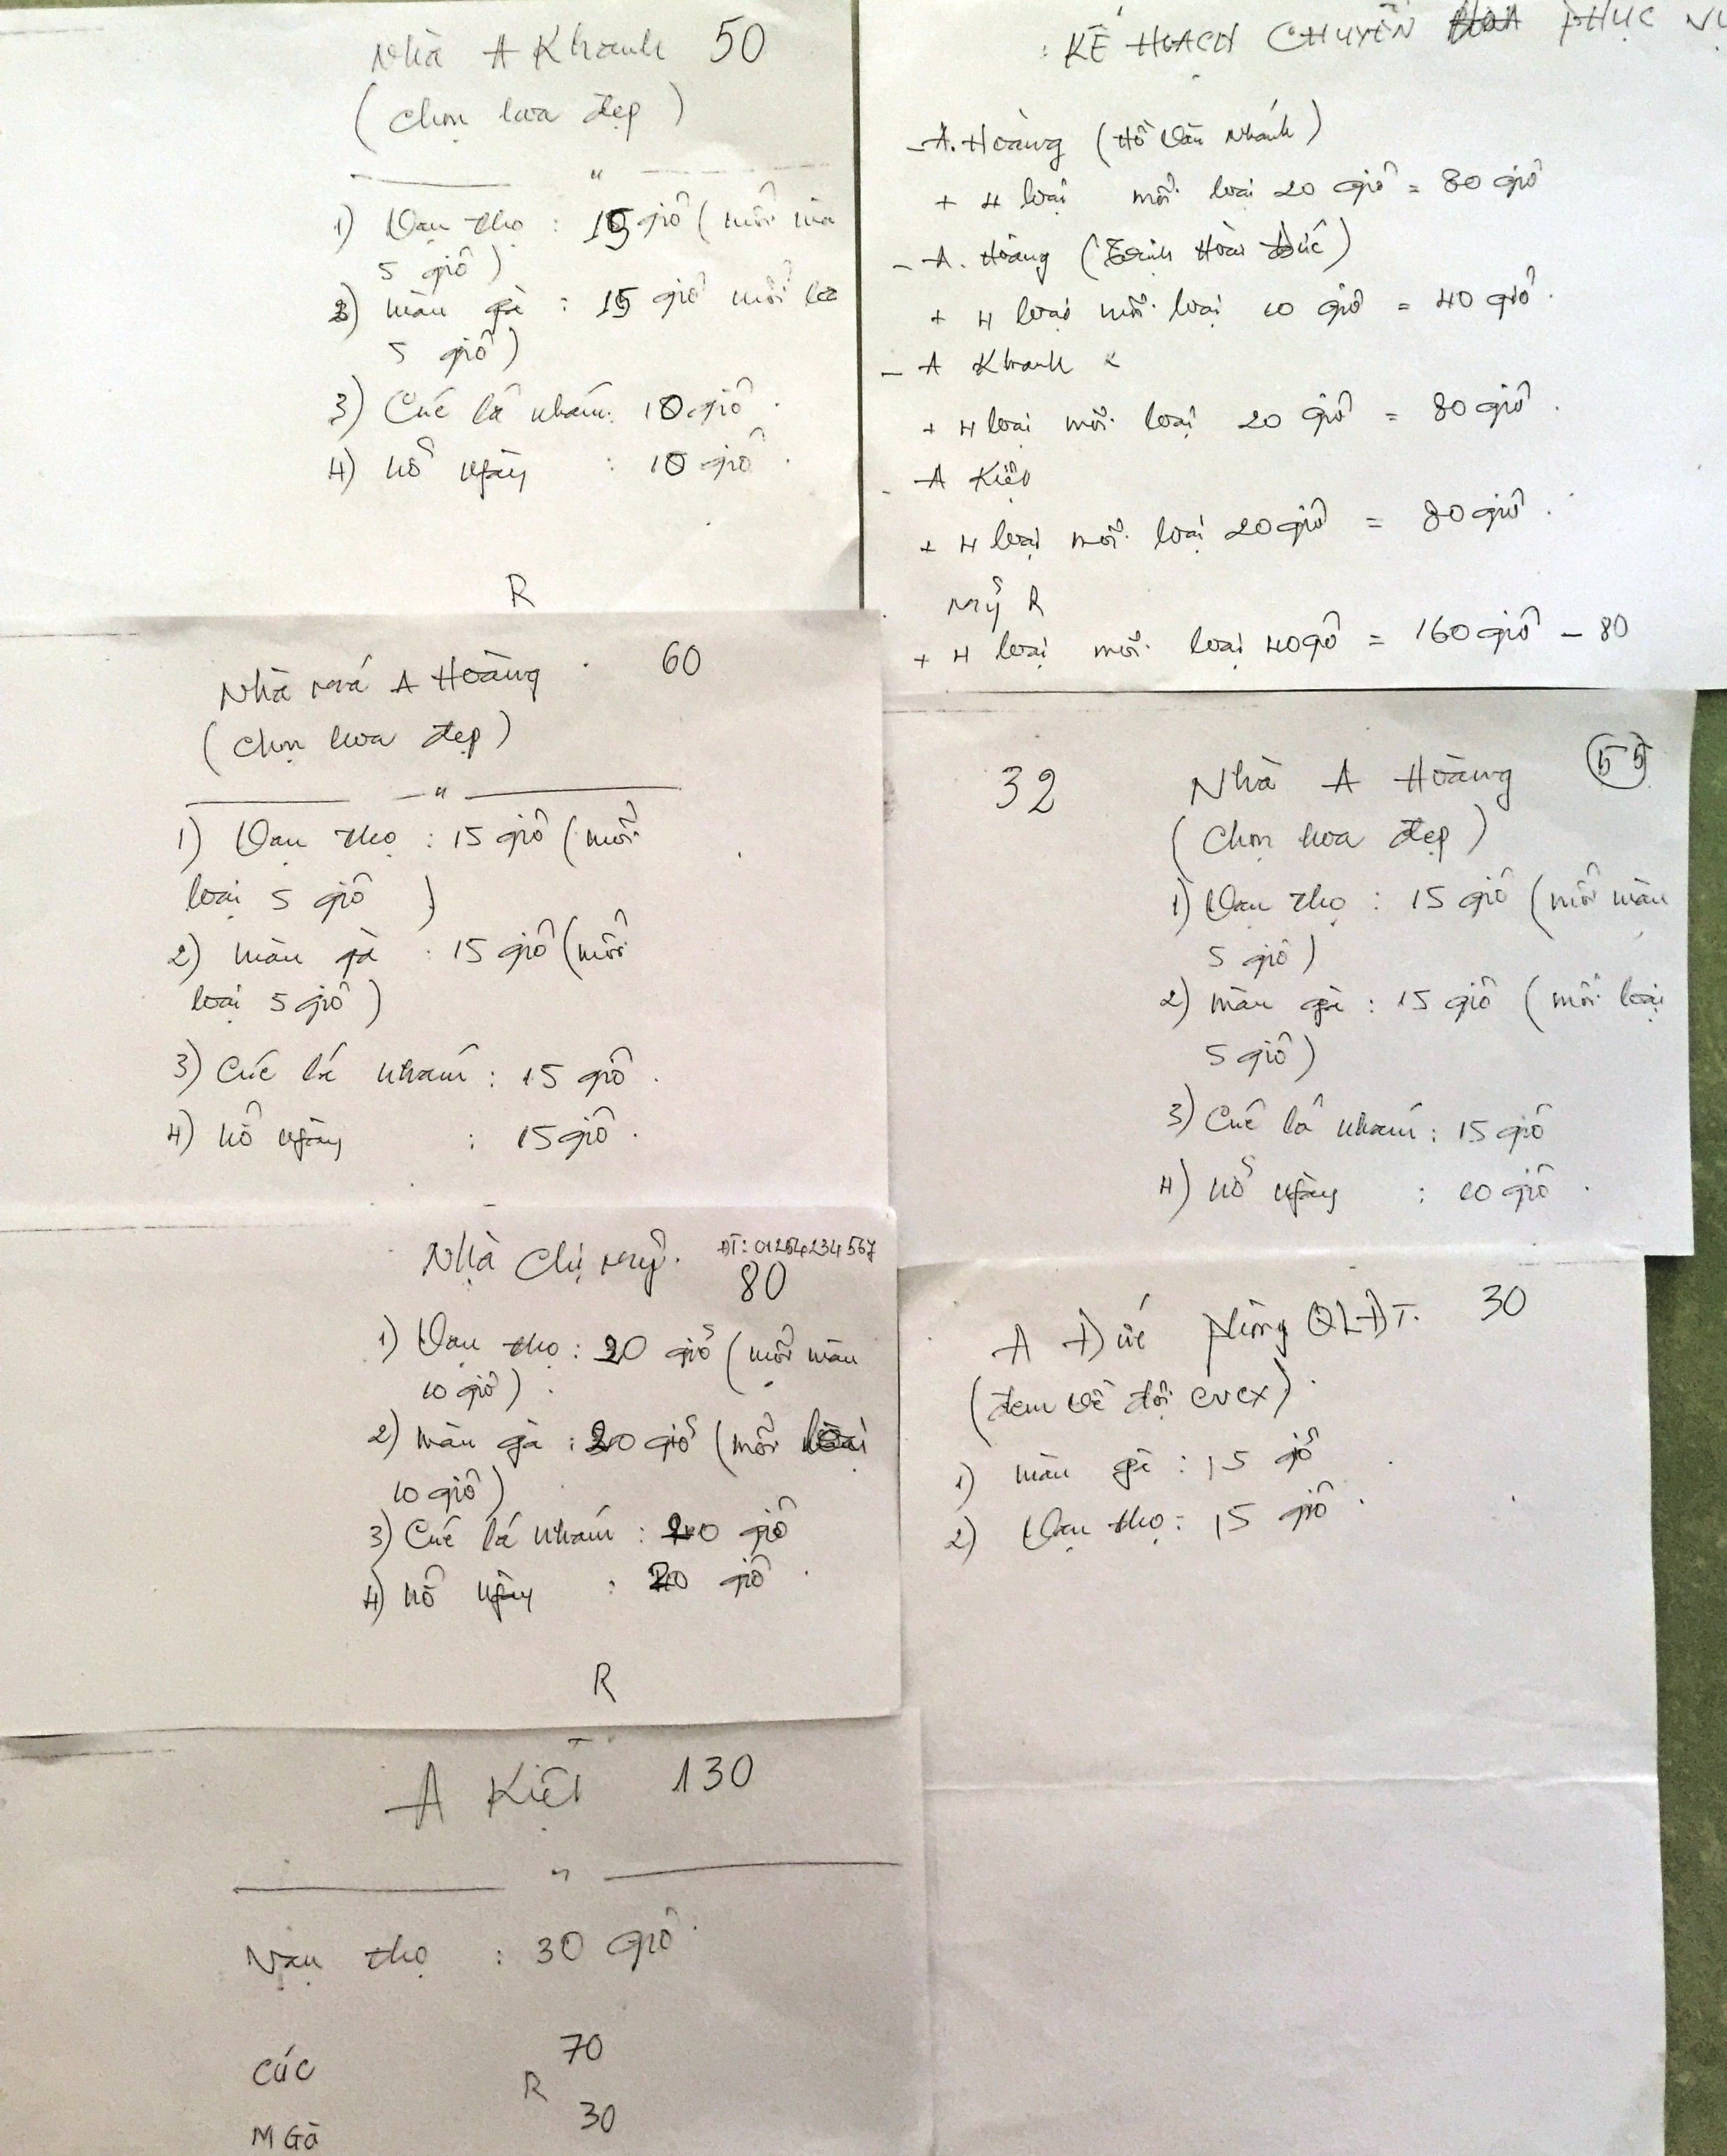 Nhà A Khanh 50
(chọn hoa đẹp)
1) Vạn thọ : 15 giỏ (mỗi màu
5 giỏ)
2) màu gà : 15 giỏ mỗi loại
5 giỏ)
3) Cúc lá nhám: 10 giỏ.
4) nở ngày : 10 giỏ.
R
: KẾ HOẠCH CHUYỂN HOA PHỤC VỤ
- A. Hoàng (Hồ Văn Nhánh)
+ 4 loại mỗi loại 20 giỏ = 80 giỏ
- A. Hoàng (Trịnh Hoài Đức)
+ 4 loại mỗi loại 10 giỏ = 40 giỏ.
- A Khanh
+ 4 loại mỗi loại 20 giỏ = 80 giỏ.
- A Kiệt
+ 4 loại mỗi loại 20 giỏ = 80 giỏ.
Mỹ R
+ 4 loại mỗi loại 40 giỏ = 160 giỏ - 80
Nhà má A Hoàng 60
(Chọn hoa đẹp)
1) Vạn thọ : 15 giỏ (mỗi
loại 5 giỏ)
2) màu gà : 15 giỏ (mỗi
loại 5 giỏ)
3) Cúc lá nhám : 15 giỏ.
4) nở ngày : 15 giỏ.
32 Nhà A Hoàng 55
(Chọn hoa đẹp)
1) Vạn thọ : 15 giỏ (mỗi màu
5 giỏ)
2) màu gà : 15 giỏ (mỗi loại
5 giỏ)
3) Cúc lá nhám : 15 giỏ
4) nở ngày : 10 giỏ.
Nhà Chị Mỹ. ĐT: 01254234567
80
1) Vạn thọ : 20 giỏ (mỗi màu
10 giỏ).
2) màu gà : 20 giỏ (mỗi loại
10 giỏ)
3) Cúc lá nhám : 20 giỏ
4) nở ngày : 20 giỏ.
R
A Đức phòng QLĐT. 30
(đem về đội CVCX).
1) màu gà : 15 giỏ
2) Vạn thọ : 15 giỏ.
A Kiệt 130
Vạn thọ : 30 giỏ.
CÚC R 70
M GÀ 30